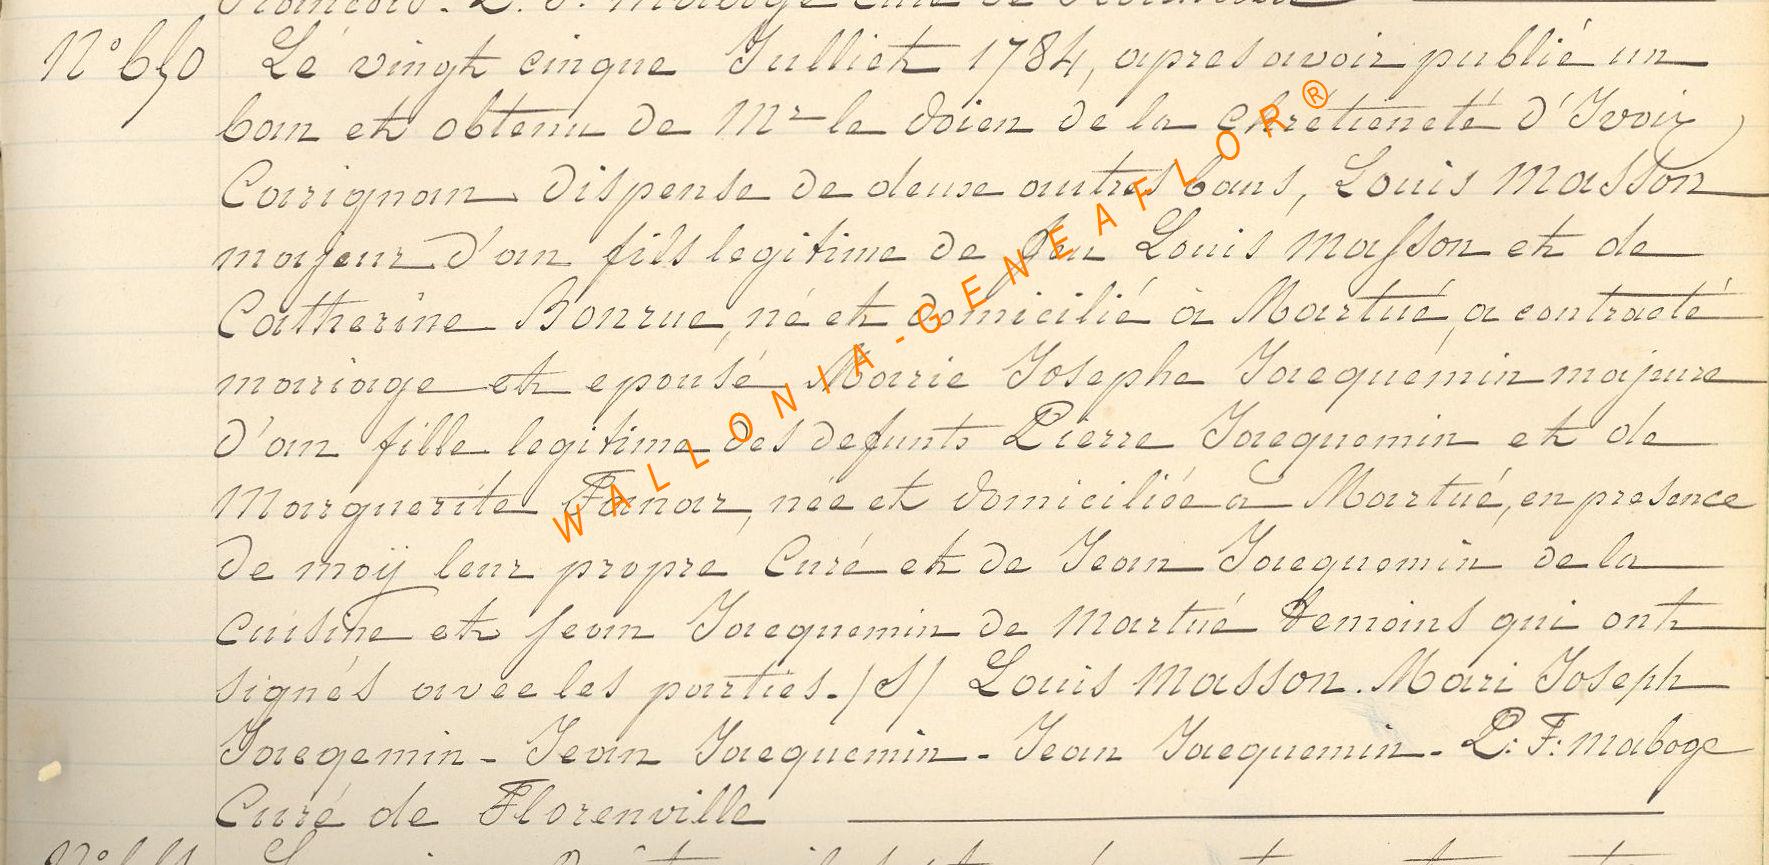 N° 650 Le vingt cinque Julliet 1784, apres avoir publié un
ban et obtenu de Mr le doien de la chretieneté d'Ivoix
Carignan dispense de deux autres bans, Louis Masson
majeur d'an fils legitime de feu Louis Masson et de
Catherine Bonrue, né et domicilié à Martué, a contracté
mariage et epousé Marie Josephe Jacquemin majeure
d'an fille legitime des defunts Pierre Jacquemin et de
Marguerite Fanar, née et domiciliée a Martué, en presence
de moÿ leur propre Curé et de Jean Jacquemin de la
cuisine et Jean Jacquemin de Martué temoins qui ont
signés avec les parties. /S/ Louis Masson. Mari Joseph
Jacgemin - Jean Jacquemin - Jean Jacquemin - L: F: Maboge
Curé de Florenville
WALLONIA-GENEAFLOR®